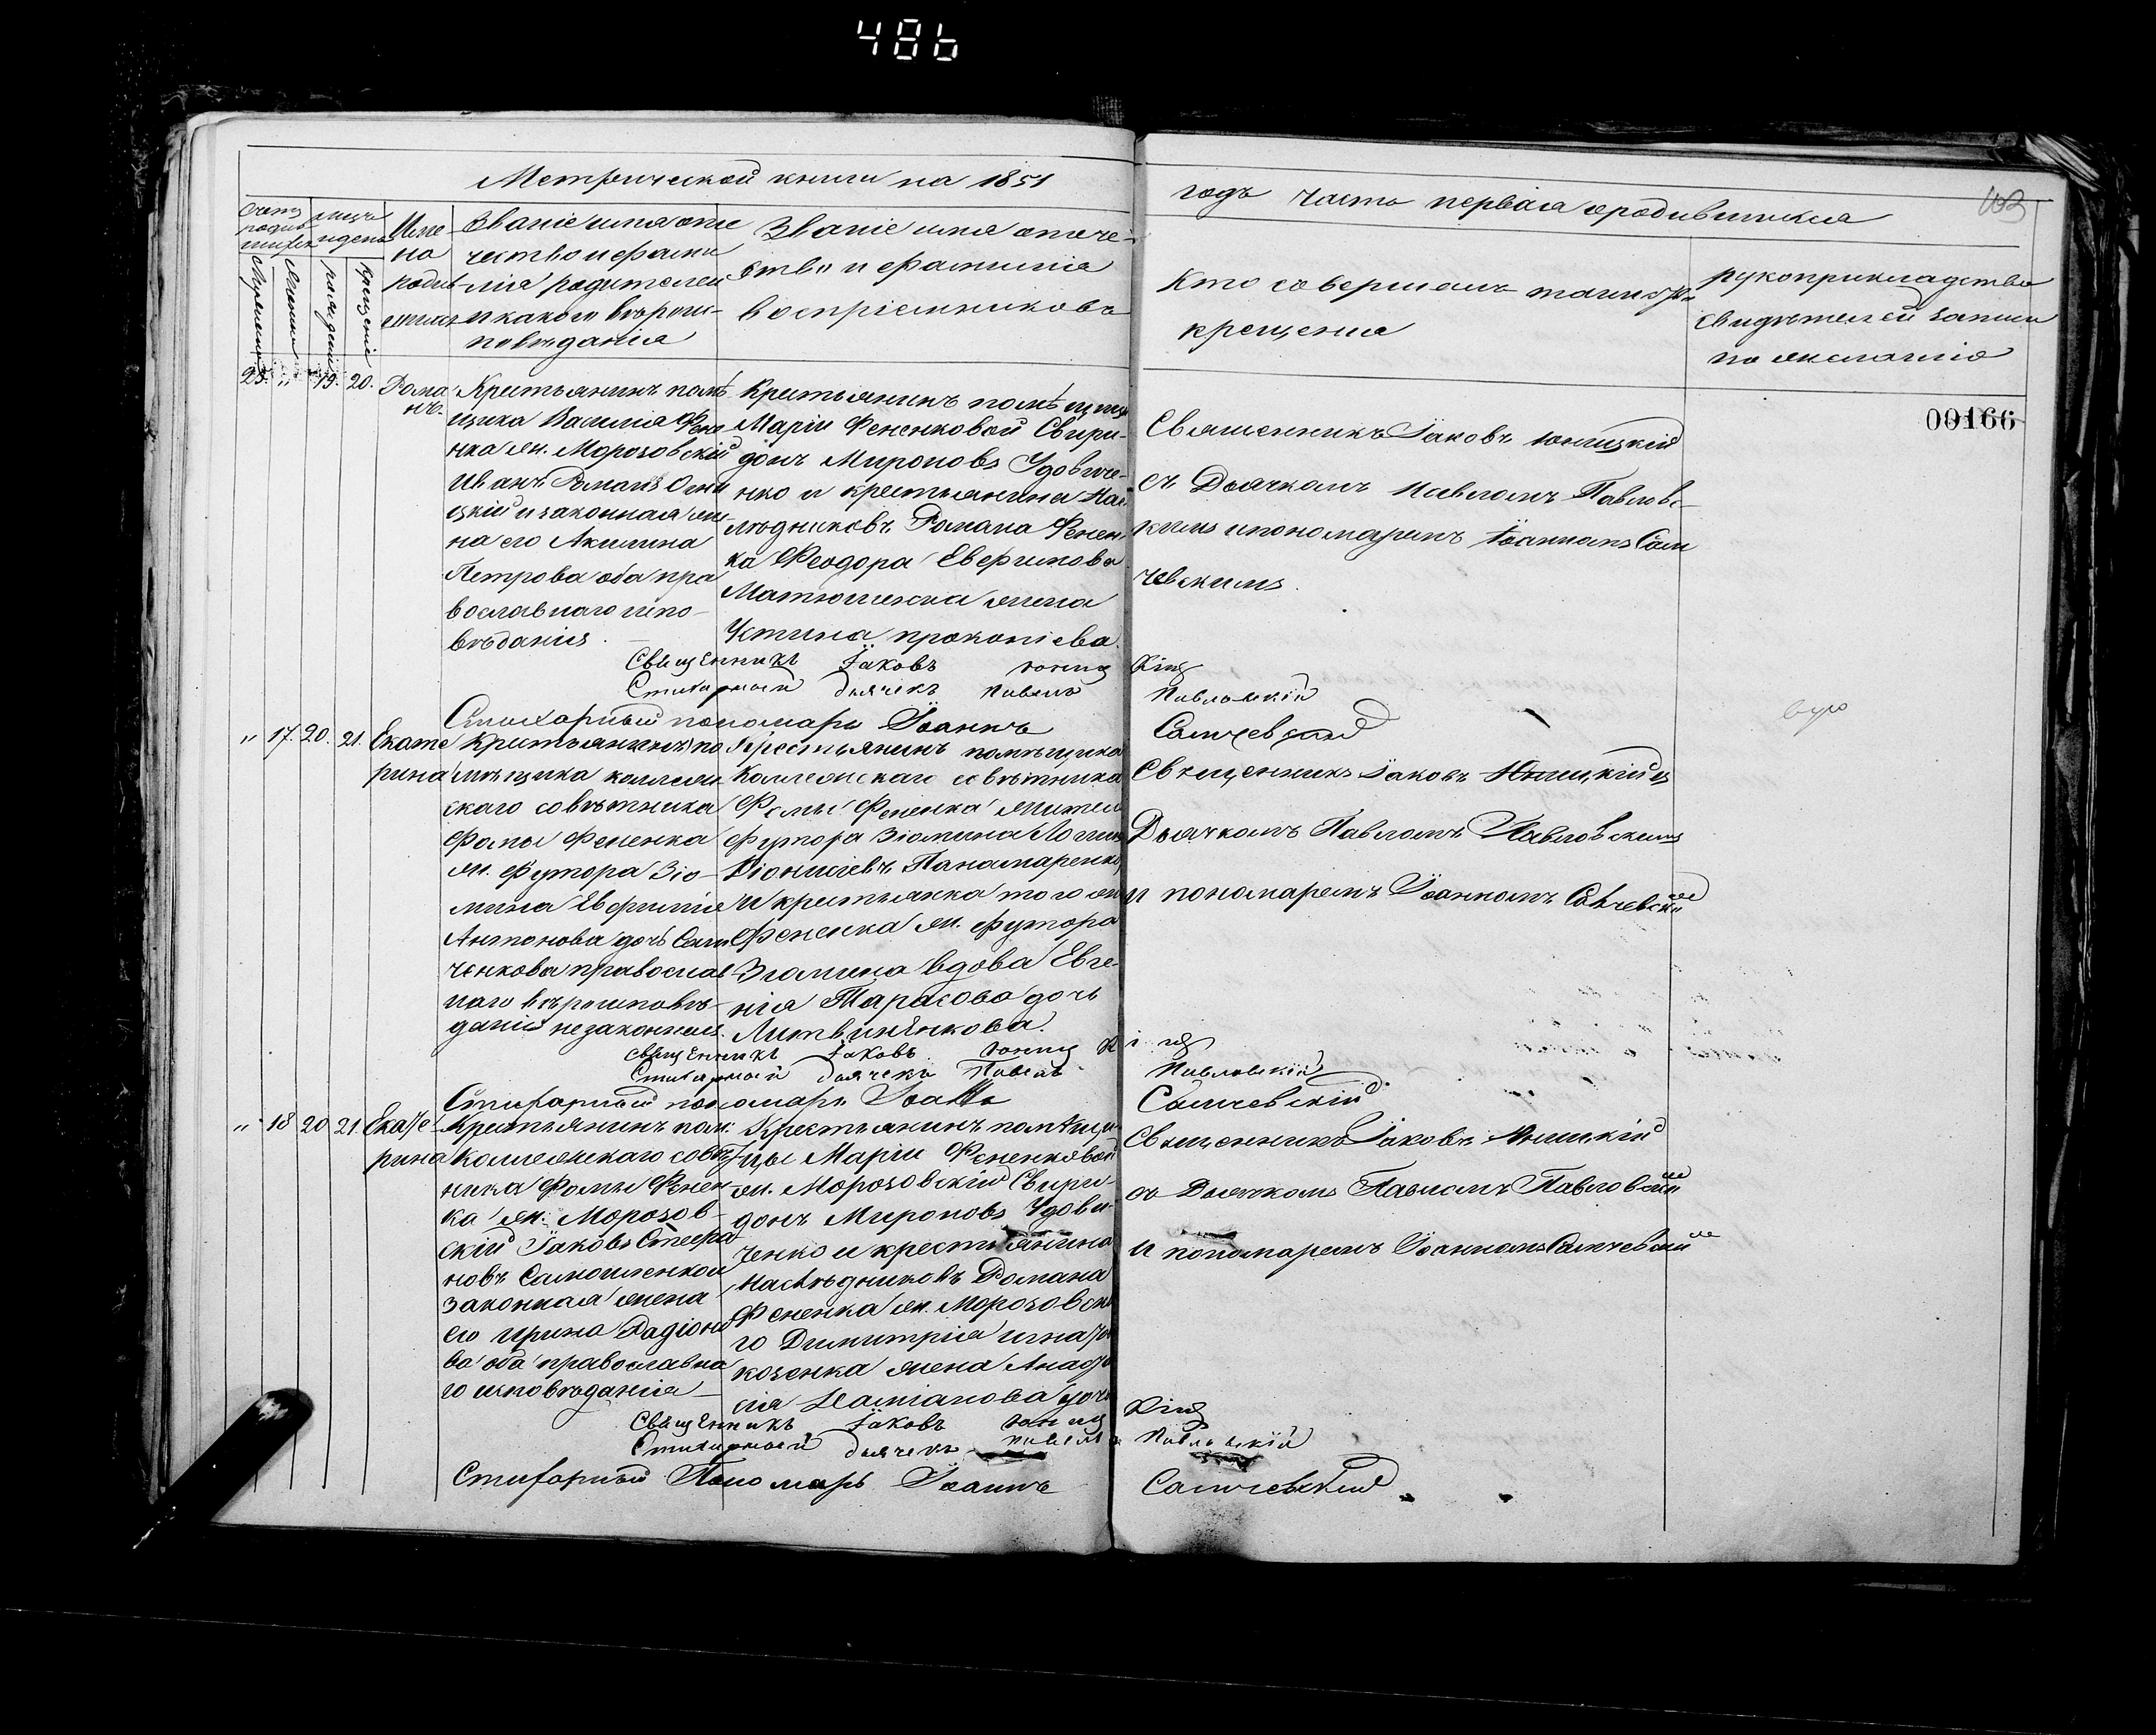 486
Метрической книги на 1851
годъ часть первая о родившихся
Счетъ родив шихся
Мужеска
Женска
рожденія
крещенія
Име
на
родив
шихся
Званіе имя оте
чество и фами
лія родителей
и какого вѣроис-
повѣданія
Званіе имя отече-
ство и фамилія
воспріемниковъ
Кто совершалъ таинство
крещенія
рукоприкладство
свидѣтелей записи
по желанію
00166
23. " 19. 20.
Рома
нъ.
Крестьянинъ помѣ
щика Василія Фене
нка жи. Морозовскій
Иванъ Романъ
цкій и законная же-
на его Акилина
Петрова оба пра
вославнаго испо-
вѣданія.
Крестьянинъ помѣщицы
Маріи Фененковой Свири-
донъ Мироновъ Удовиче-
нко и крестьянина нас
лѣдниковъ Романа Фенен
ка Феодора Евфимова
Матюшенка жена
Устина прокопіева.
Священникъ Іаковъ Юницкій
съ Дьячкомъ Павломъ Павловс-
кимъ и пономаремъ Іоанномъ Сам
чевскимъ.
Священникъ Іаковъ Юницкій
Стихарный дьячекъ Павелъ Павловскій
Стихарный пономарь Іоаннъ Самчевскій
" 17. 20. 21.
Екате
рина
Крестьянинъ по
мѣщика коллеж
скаго совѣтника
Фомы Фененка
жи. футора Зіо-
мина Евфимія
Антонова дочь Сам
ченкова православ
наго вѣроисповѣ-
данія незаконная.
Крестьянинъ помѣщика
Коллежскаго совѣтника
Фомы Фененка жители
футора Зіомина Логинъ
Діонисіевъ Панамаренко
и крестьянка того же
Фененка жи. футора
Зіомина вдова Евге-
нія Тарасова дочь
Литвиненкова.
Священникъ Іаковъ Юницкій и
Дьячкомъ Павломъ Павловскимъ
и пономаремъ Іоанномъ Самчевскимъ
Священникъ Іаковъ Юницкій
Стихарный дьячекъ Павелъ Павловскій
Стихарный пономарь Іоаннъ Самчевскій
" 18 20 21.
Екате
рина
Крестьянинъ пом:
Коллежскаго совѣт
ника Фомы Фенен
ка жи. Морозов-
скій Іаковъ Стефа
новъ Самошенко и
законная жена
его Ирина Радіоно
ва оба православна
го исповѣданія
Крестьянинъ помѣщи-
цы Маріи Фененковой
жи. Морозовскій Свири-
донъ Мироновъ Удови-
ченко и крестьянина
наслѣдниковъ Романа
Фененка жи. Морозовска
го Димитрія Игнато
козенка жена Анаста
сія Даміанова дочь
Священникъ Іаковъ Юницкій
съ Дьячкомъ Павломъ Павловскимъ
и пономаремъ Іоанномъ Самчевскимъ
Священникъ Іаковъ Юницкій
Стихарный дьячекъ Павелъ Павловскій
Стихарный Пономарь Іоаннъ Самчевскій